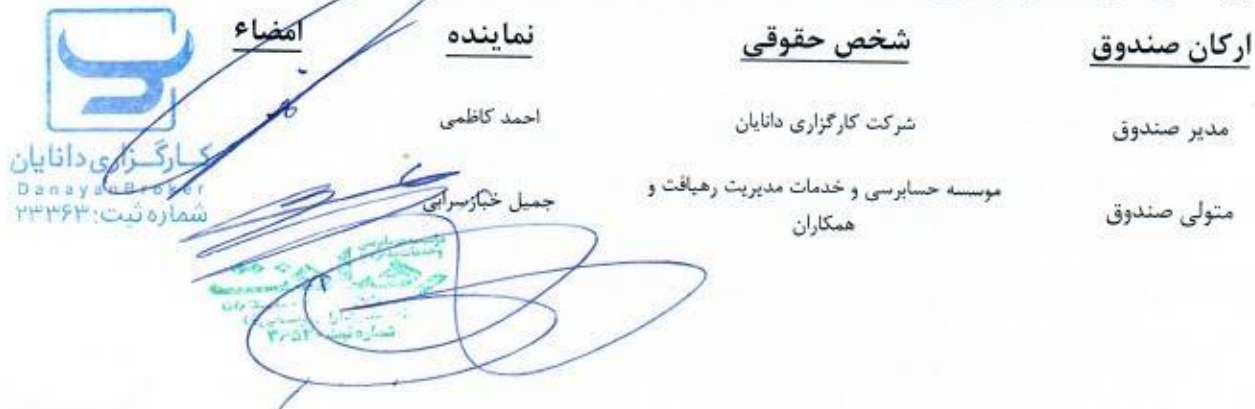 ارکان صندوق شخص حقوقی نماینده امضاء
مدیر صندوق شرکت کارگزاری دانایان احمد کاظمی
متولی صندوق موسسه حسابرسی و خدمات مدیریت رهیافت و همکاران جمیل خبازسرابی
کارگزاری دانایان
DanayanBroker
شماره ثبت: ۲۳۳۶۳
موسسه حسابرسی
شماره ثبت